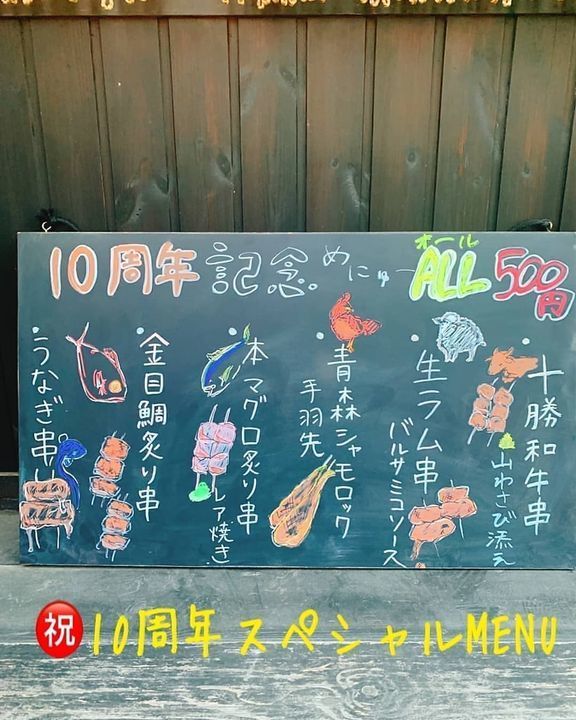 10周年記念めにゅー ALL 500円
オール
・十勝和牛串
山わさび添え
・生ラム串
バルサミコソース
・青森シャモロック
手羽先
・本マグロ炙り串
レア焼き
・金目鯛炙り串
・うなぎ串
㊗10周年スペシャルMENU